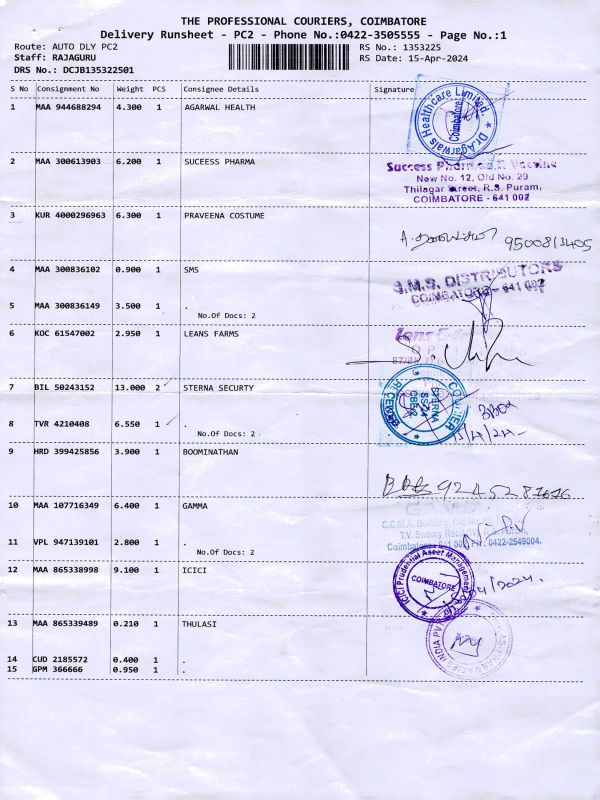 THE PROFESSIONAL COURIERS, COIMBATORE
Delivery Runsheet - PC2 - Phone No.:0422-3505555 - Page No.:1
Route: AUTO DLY PC2 RS No.: 1353225
Staff: RAJAGURU RS Date: 15-Apr-2024
DRS No.: DCJB135322501
S No Consignment No Weight PCS Consignee Details Signature
1 MAA 944688294 4.300 1 AGARWAL HEALTH
Dr.Agarwals Healthcare Limited
Coimbatore
2 MAA 300613903 6.200 1 SUCEESS PHARMA
Success Vaccine
New No. 12, Old No. 20
Thilagar Street, R.S. Puram,
COIMBATORE - 641 002
3 KUR 4000296963 6.300 1 PRAVEENA COSTUME
9500813405
4 MAA 300836102 0.900 1 SMS
S.M.S. DISTRIBUTORS
COIMBATORE - 641 002
5 MAA 300836149 3.500 1 .
No.Of Docs: 2
6 KOC 61547002 2.950 1 LEANS FARMS
7 BIL 50243152 13.000 2 STERNA SECURTY
COURIER
STERNA
CBE
RECEIVED
8 TVR 4210408 6.550 1 .
No.Of Docs: 2
9 HRD 399425856 3.900 1 BOOMINATHAN
10 MAA 107716349 6.400 1 GAMMA
GAMMA
C.G.M.A. Building, Old
T.V. Swamy Road
11 VPL 947139101 2.800 1 .
Coimbatore - 641 002 PH : 0422-2549004.
No.Of Docs: 2
12 MAA 865338998 9.100 1 ICICI
ICICI Prudential Asset Management
COIMBATORE
13 MAA 865339489 0.210 1 THULASI
14 CUD 2185572 0.400 1 .
15 GPM 366666 0.950 1 .